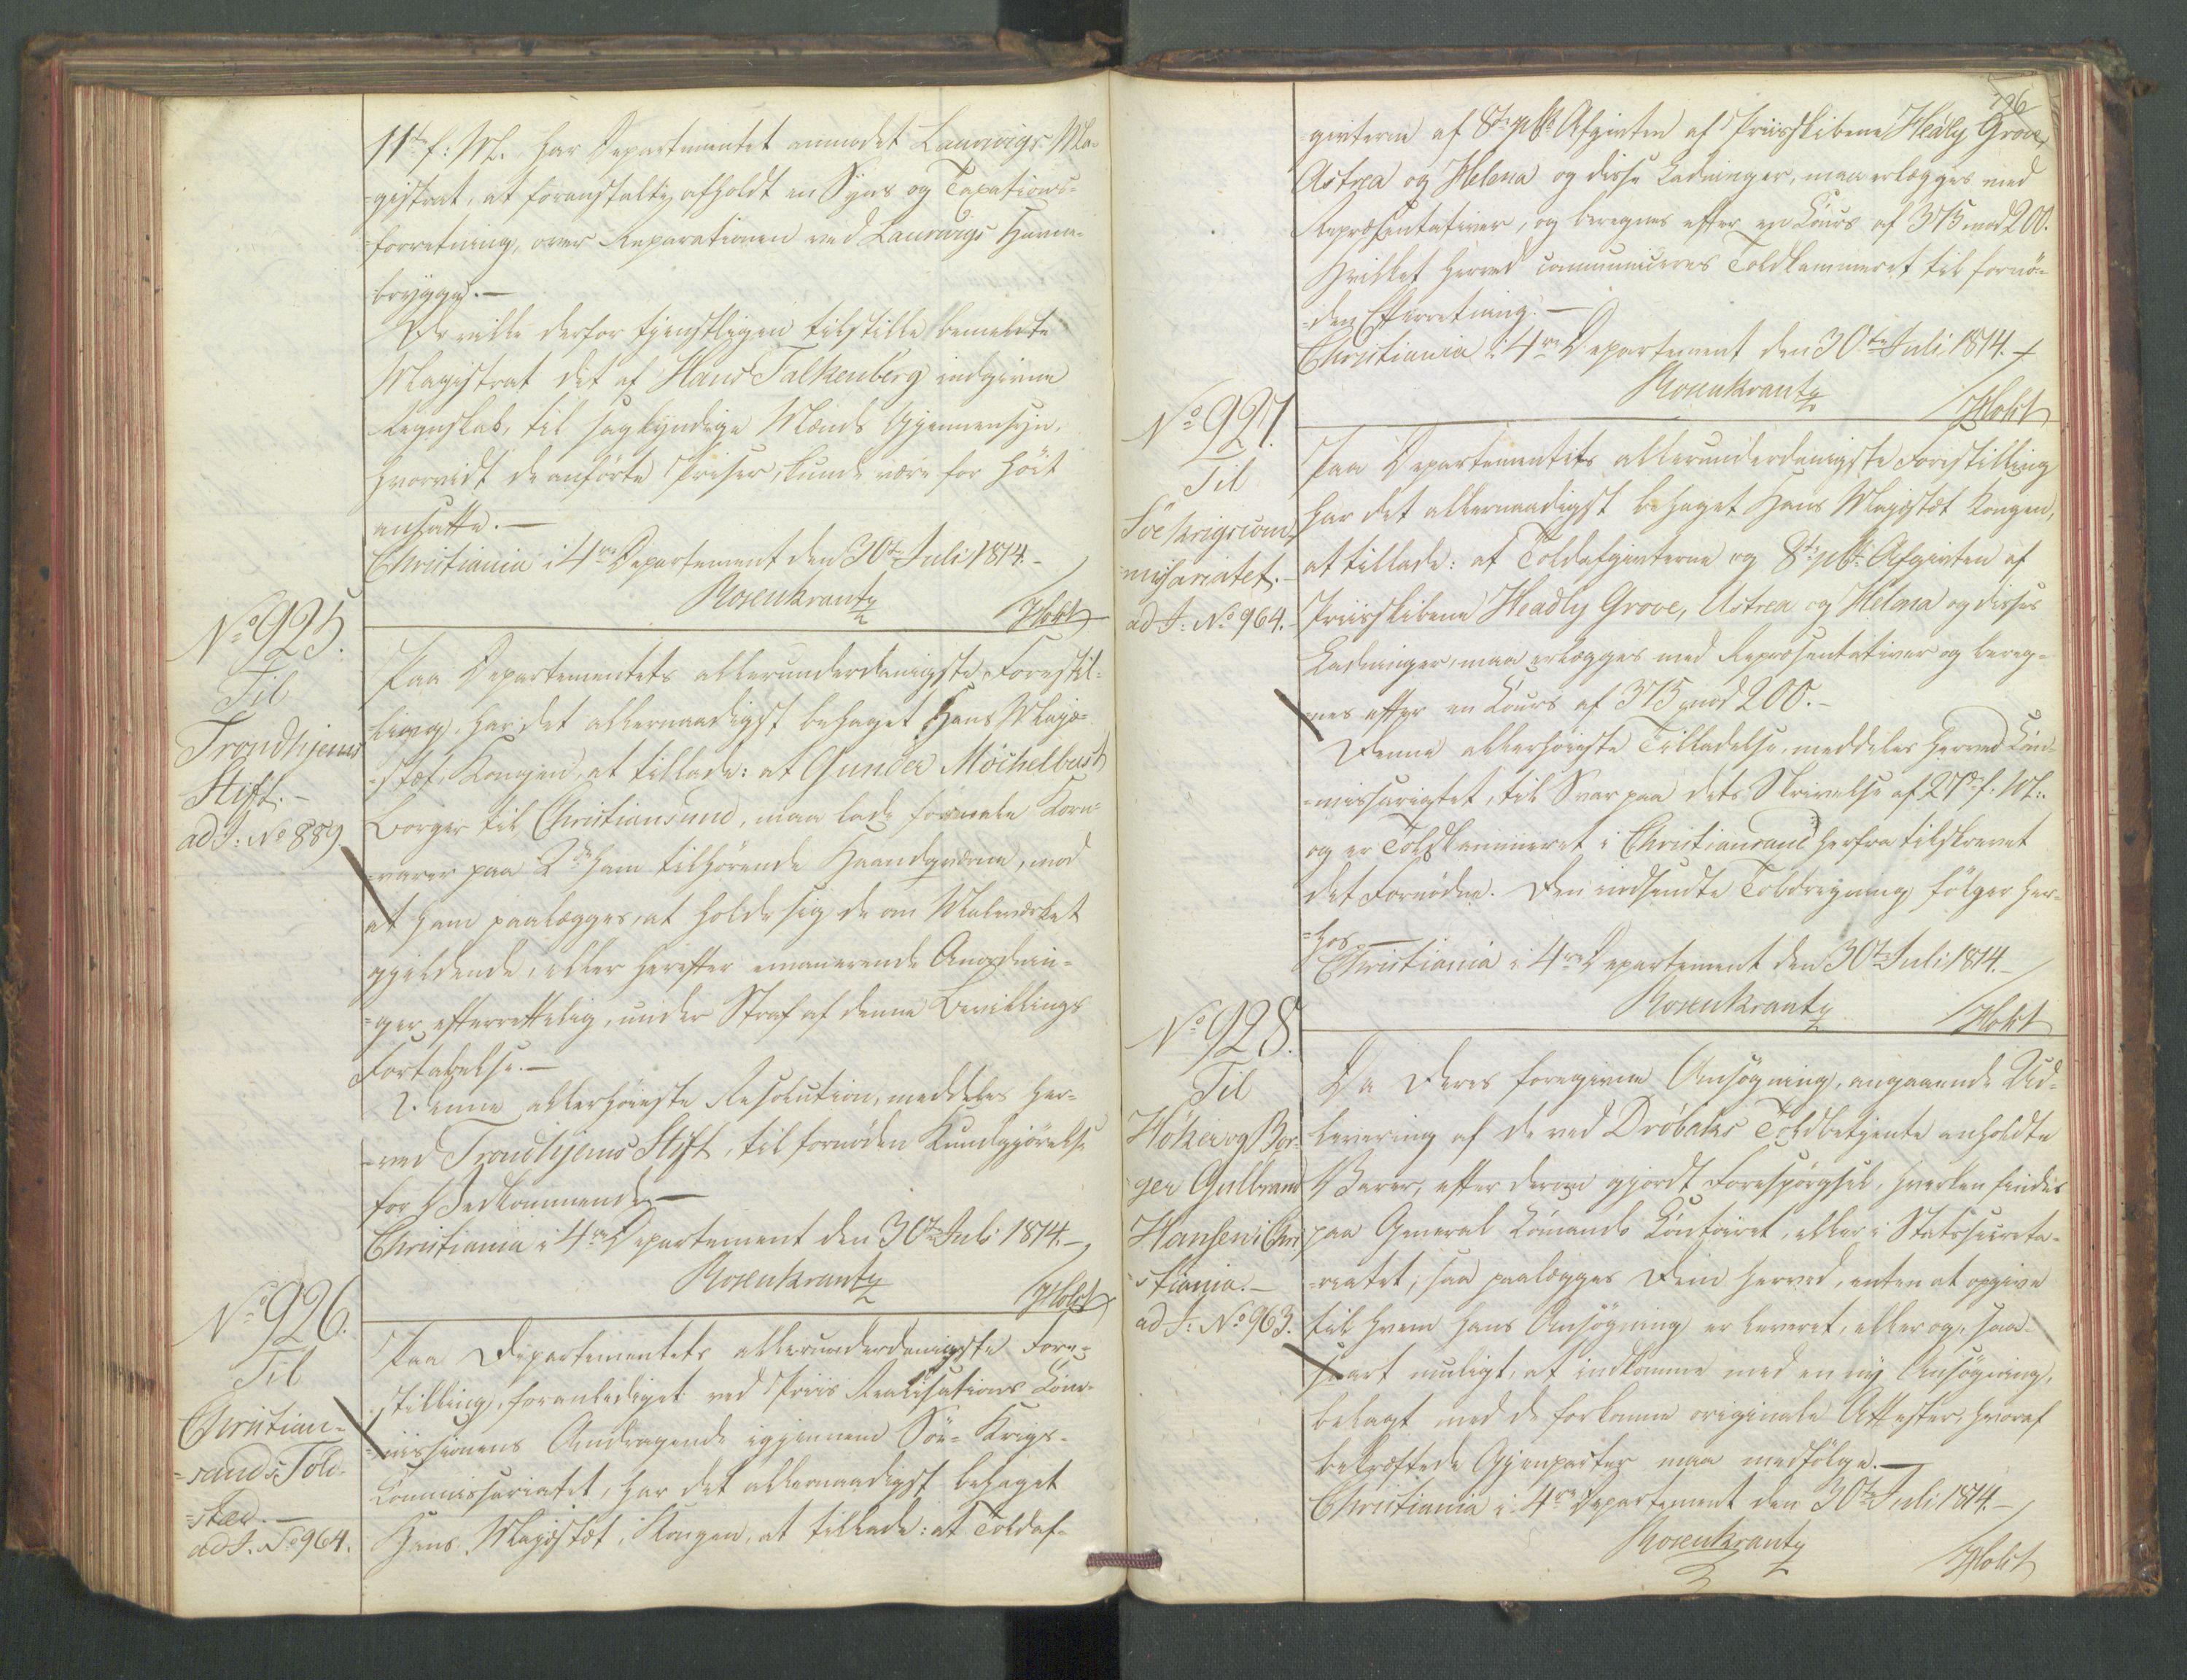 11te f: M. har Departementet anmodet Laurvigs Ma-
gistrat, at foranstalte afholdt en Syns og Taxations-
forretning, over Reparationen ved Laurvigs Havne-
brygge.—
De ville derfor tjenstligen tilstille bemeldte
Magistrat det af Hans Falkenberg indgivne
Regnskab, til sagkyndige Mænds Gjennemsyn,
hvorvidt de anførte Priser, kunde være for høit
ansatte.—
Christiania i 4re Departement den 30te Juli 1814.—
Rosenkrantz
Holst
No 925.
Til
Trondhjems
Stift.—
ad J: No 889.
Paa Departementets allerunderdanigste Forestil-
ling, har det allernaadigst behaget Hans Maje-
stæt Kongen, at tillade: at Gunder Möchelbust
Borger til Christiansund, maa lade formale Korn-
varer paa 2de ham tilhørende Haandqværne, mod
at ham paalægges, at holde sig de om Maleværket
gjeldende, eller herefter emanerende Anordnin-
ger efterrettelig, under Straf af denne Bevillings
Fortabelse.—
Denne allerhöieste Resolution, meddeles her-
ved Trondhjems Stift, til fornöden Kundgjörelse
for Vedkommende.—
Christiania i 4re Departement den 30te Juli 1814.—
Rosenkrantz
Holst
No 926.
Til
Christian-
sands Told-
sted.—
ad J. No 964.
Paa Departementets allerunderdanigste Fore-
stilling, foranlediget ved Priis Realisations Com-
missionens Andragende igjennem Söe-Krigs-
Commissariatet, har det allernaadigst behaget
Hans Majestæt Kongen, at tillade: at Toldaf-
196
givterne af 8te pCt Afgivten af Priisskibene Headly Grove,
Astrea og Helena og disse Ladninger, maa erlægges med
Repræsentativer, og beregnes efter en Cours af 375 mod 200.
Hvilket herved communiceres Toldkammeret til fornö-
den Efterretning.—
Christiania i 4re Departement den 30te Juli 1814.—
Rosenkrantz
Holst
No 927.
Til
Söe Krigscom-
missariatet.—
ad J: No 964.—
Paa Departementets allerunderdanigste Forestilling
har det allernaadigst behaget Hans Majestæt Kongen,
at tillade: at Toldafgivterne og 8te pCt Afgivten af
Priisskibene Headly Grove, Astrea og Helena og disses
Ladninger, maa erlægges med Repræsentativer og bereg-
nes efter en Cours af 375 mod 200.—
Denne allerhöieste Tilladelse, meddeles herved Com-
missariatet, til Svar paa dets Skrivelse af 27de f. M.
og er Toldkammeret i Christiansand herfra tilskrevet
det Fornödne. Den indsendte Toldregning fölger her-
hos.—
Christiania i 4re Departement den 30te Juli 1814.—
Rosenkrantz
Holst
No 928.
Til
Höker og Bor-
ger Gulbrand
Hansen i Chri-
stiania.—
ad J: No 963.
Da Deres foregivne Ansögning, angaaende Ud-
levering af de ved Dröbaks Toldbetjente anholdte
Varer, efter derom gjordt Forespörgsel, hverken findes
paa General Commando Contoiret, eller i Statssecreta-
riatet, saa paalægges Dem herved, enten at opgive
til hvem Hans Ansögning er leveret, eller og, saa-
snart muligt, at indkomme med en ny Ansögning,
belagt med de forkomne originale Attester, hvoraf
bekræftede Gjenparter maa medfölge.—
Christiania i 4re Departement den 30te Juli 1814.—
Rosenkrantz
Holst